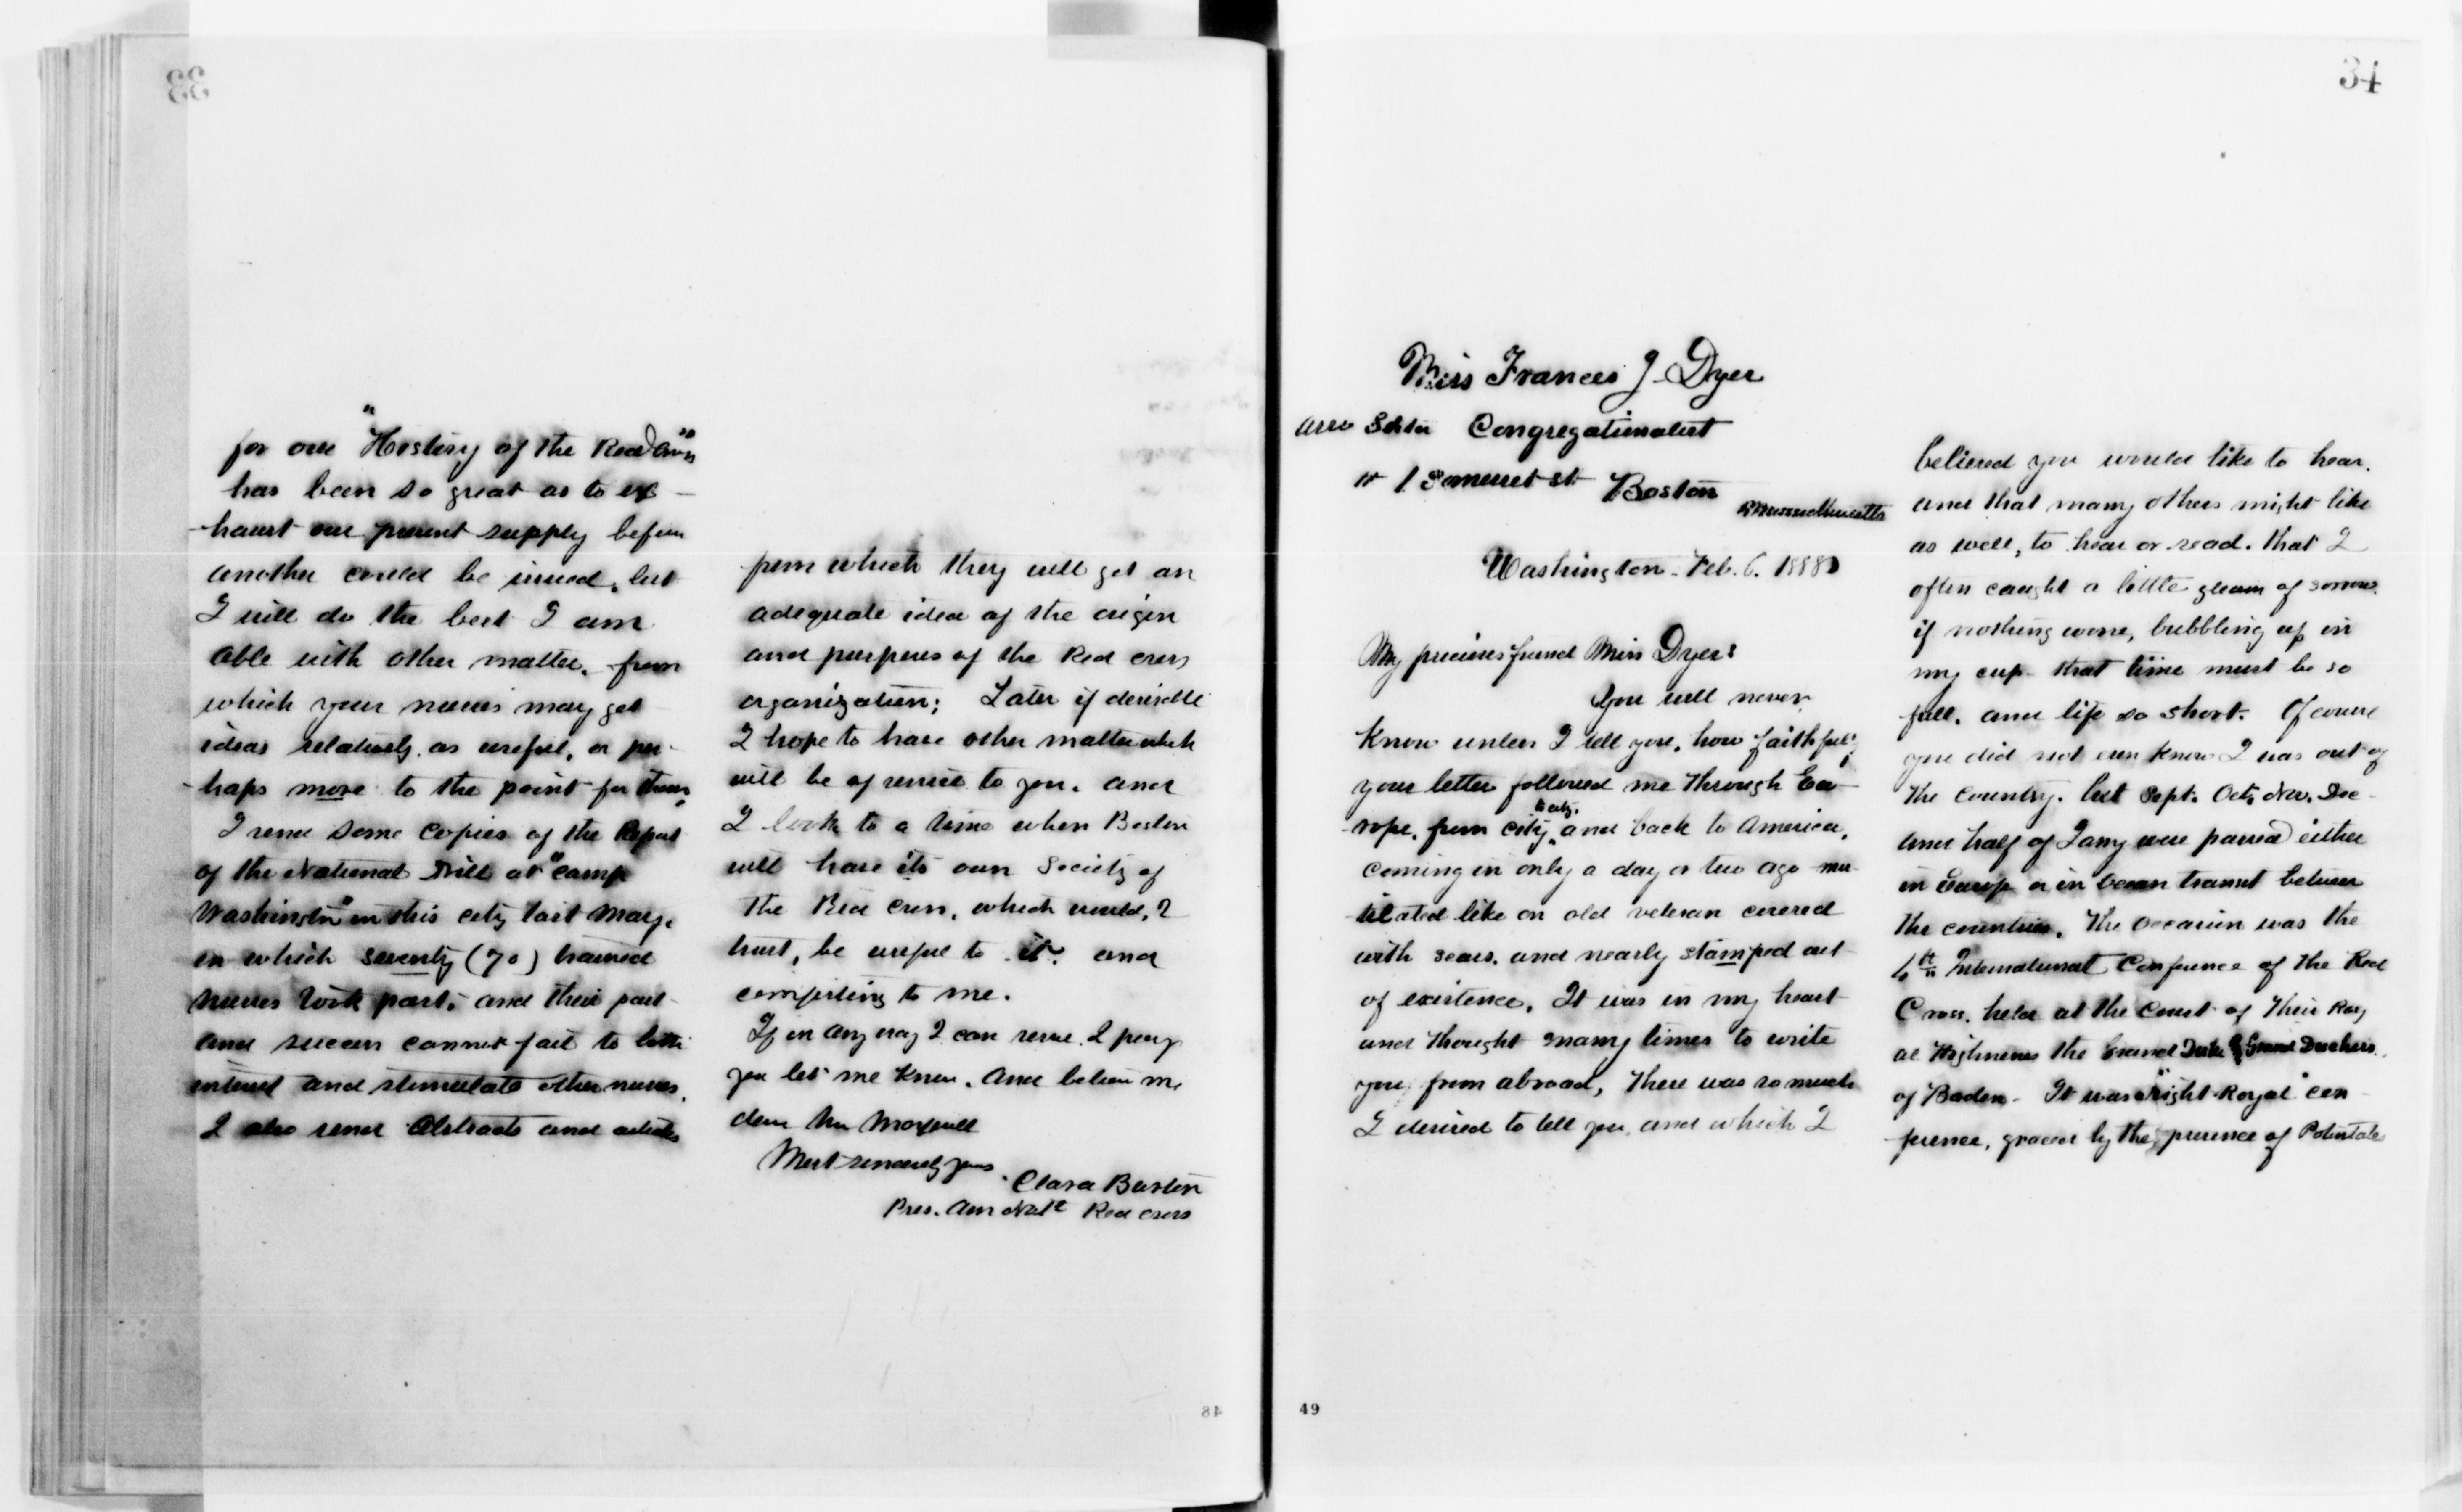 33
for our "History of the Red Cross"
has been so great as to ex-
haust our present supply before
another could be issued, but
I will do the best I am
able with other matter, from
which your nurses may get
ideas relatively as useful, or per-
haps more to the point for them,
I send some copies of the Report
of the National Drill at "Camp
Washington" in this city last May,
in which seventy (70) trained
nurses took part, and their part
and success cannot fail to both
interest and stimulate other nurses.
I also send Abstracts and articles
from which they will get an
adequate idea of the origin
and purposes of the Red cross
organization; Later if desirable
I hope to have other matter which
will be of service to you. and
I look to a time when Boston
will have its own Society of
the Red Cross, which would, I
trust, be useful to it. and
comforting to me.
If in any way I can serve I pray
you let me know. and believe me
dear Mrs Maxwell
Most sincerely yours
Clara Barton
Pres. Am Natl Red cross
48
34
Miss Frances J. Dyer
Congregationalist
1 Somerset st Boston
Massachusetts
Washington. Feb. 6. 1888
My precious friend Miss Dyer:
You will never
know unless I tell you, how faithfully
your letter followed me through Eu-
rope, from city to city, and back to America,
coming in only a day or two ago mu-
tilated like an old veteran covered
with scars, and nearly stamped out
of existence. It was in my heart
and thought many times to write
you from abroad, there was so much
I desired to tell you, and which I
believed you would like to hear,
and that many others might like
as well, to hear or read. that I
often caught a little gleam of sorrow,
if nothing worse, bubbling up in
my cup that time must be so
full, and life so short. Of course
you did not even know I was out of
the country. but Sept. Oct, Nov. Dec
and half of Jany were passed either
in Europe or in Ocean transit between
the countries. The occasion was the
4th International Conference of the Red
Cross. held at the Court of Their Roy
al Highnesses the Grand Duke & Grand Duchess
of Baden. It was a "right Royal" con-
ference, graced by the presence of Potentate
49